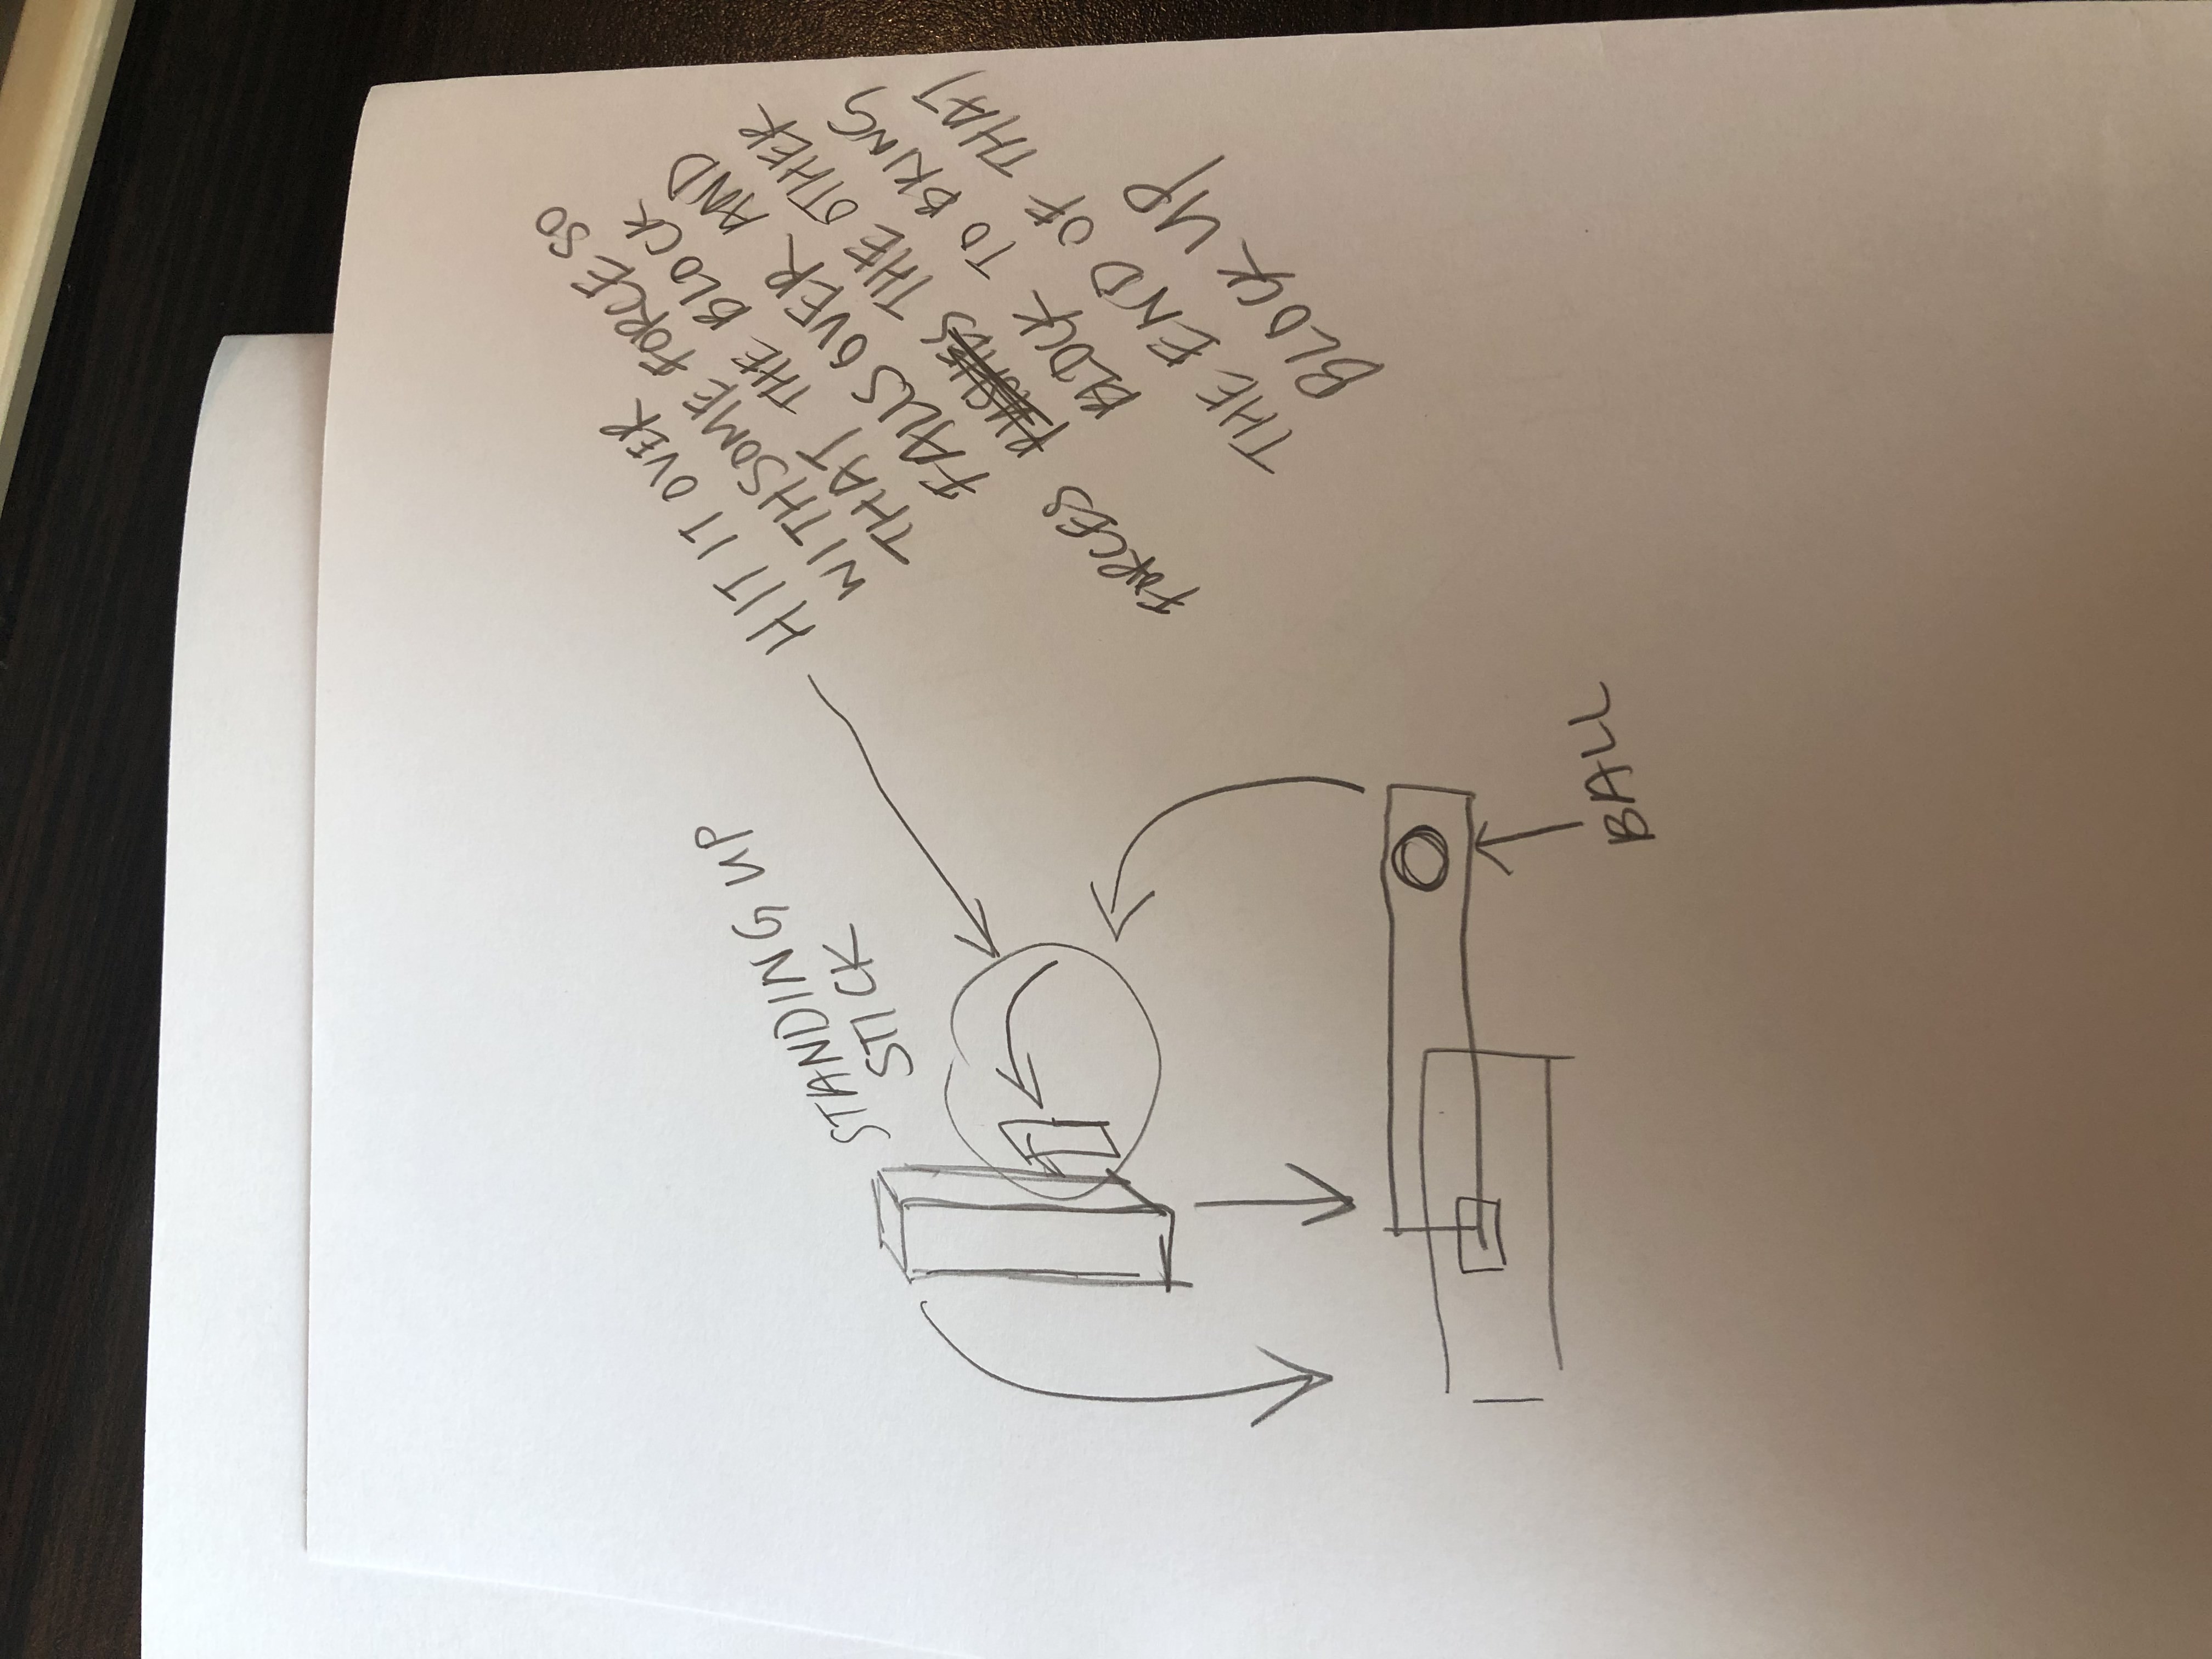 STANDING UP
STICK
HIT IT OVER
WITH SOME FORCE SO
THAT THE BLOCK
FALLS OVER AND
FORCES PUSHES THE OTHER
BLOCK TO BRING
THE END OF THAT
BLOCK UP
BALL